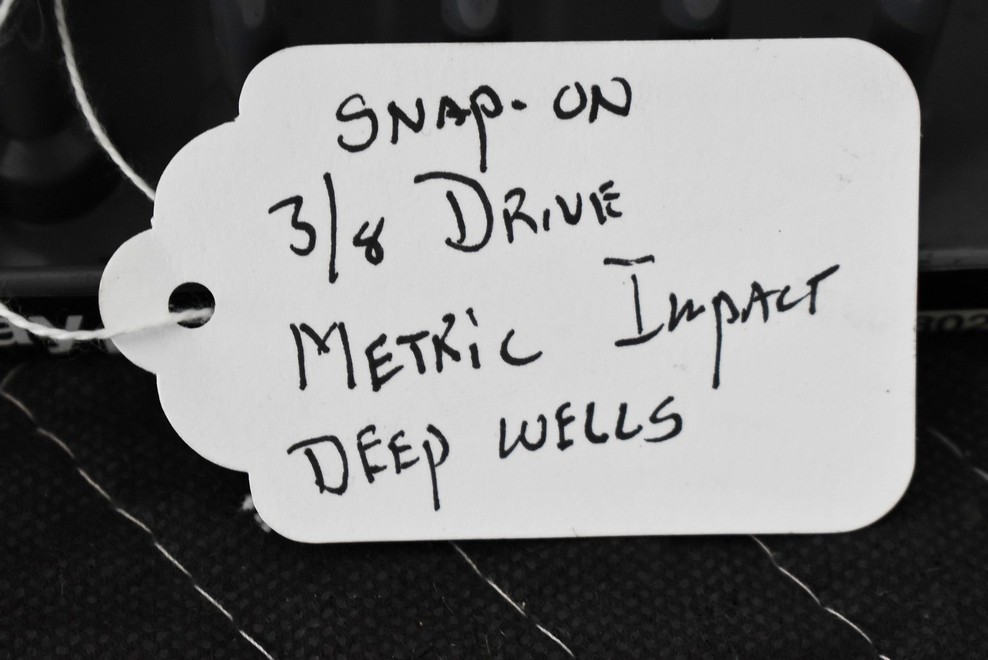 SNAP-ON
3/8 DRIVE
METRIC IMPACT
DEEP WELLS